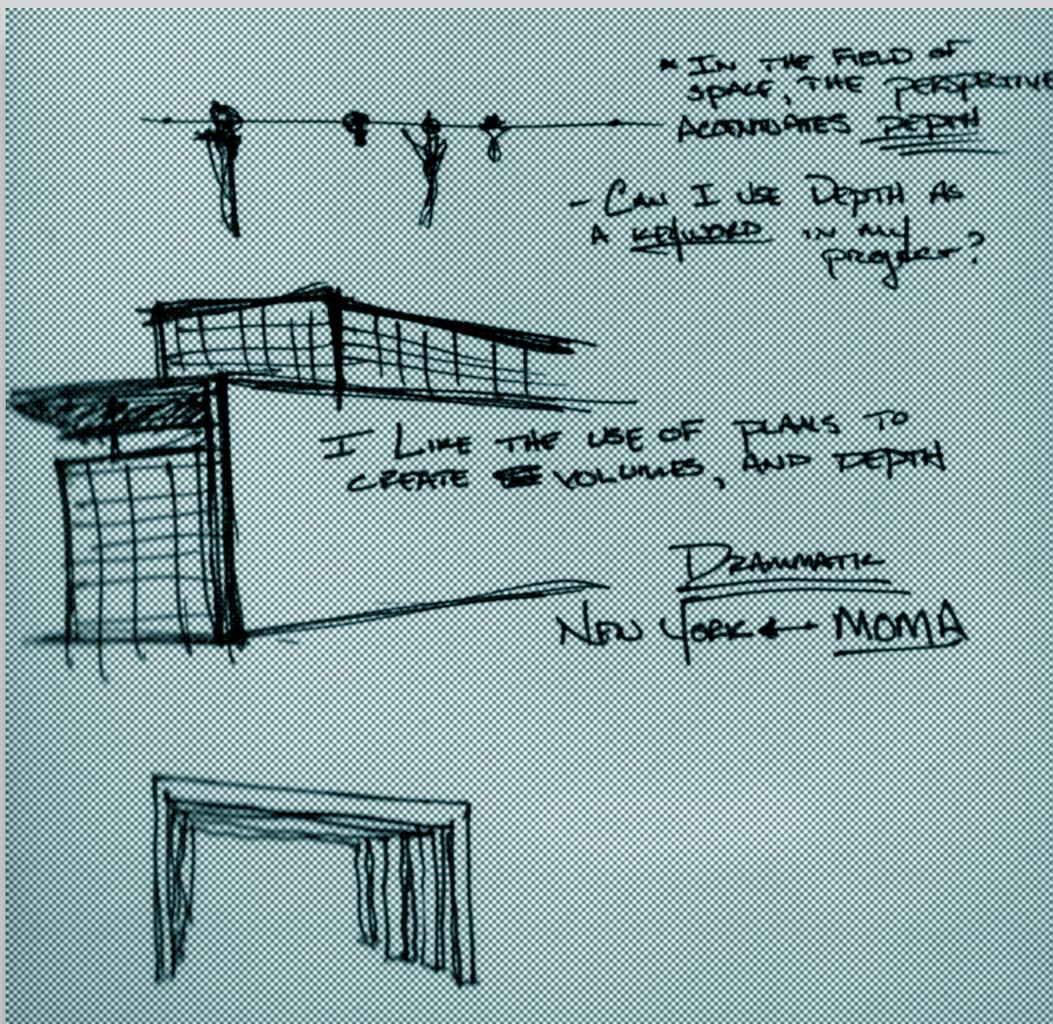 * IN THE FIELD OF
SPACE, THE PERSPECTIVE
ACENTUATES DEPTH
- CAN I USE DEPTH AS
A KEYWORD IN MY
project?
I LIKE THE USE OF PLANS TO
CREATE VOLUMES, AND DEPTH
DRAMMATIC
NEW YORK ← MOMA